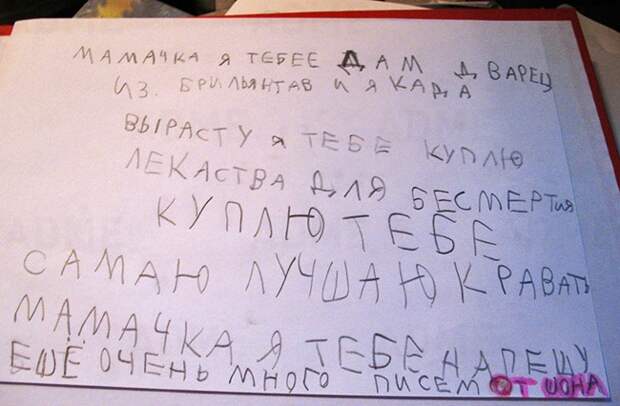 МАМАЧКА Я ТЕБЕЕ ДАМ ДВАРЕЦ
ИЗ. БРИЛЬЯНТАВ И Я КАДА
ВЫРАСТУ Я ТЕБЕ КУПЛЮ
ЛЕКАСТВА ДЛЯ БЕСМЕРТИЯ
КУПЛЮ ТЕБЕ
САМАЮ ЛУЧШАЮ КРАВАТЬ
МАМАЧКА Я ТЕБЕ НАПЕШУ
ЕЩЁ ОЧЕНЬ МНОГО ПИСЕМ ОТ ИОНА